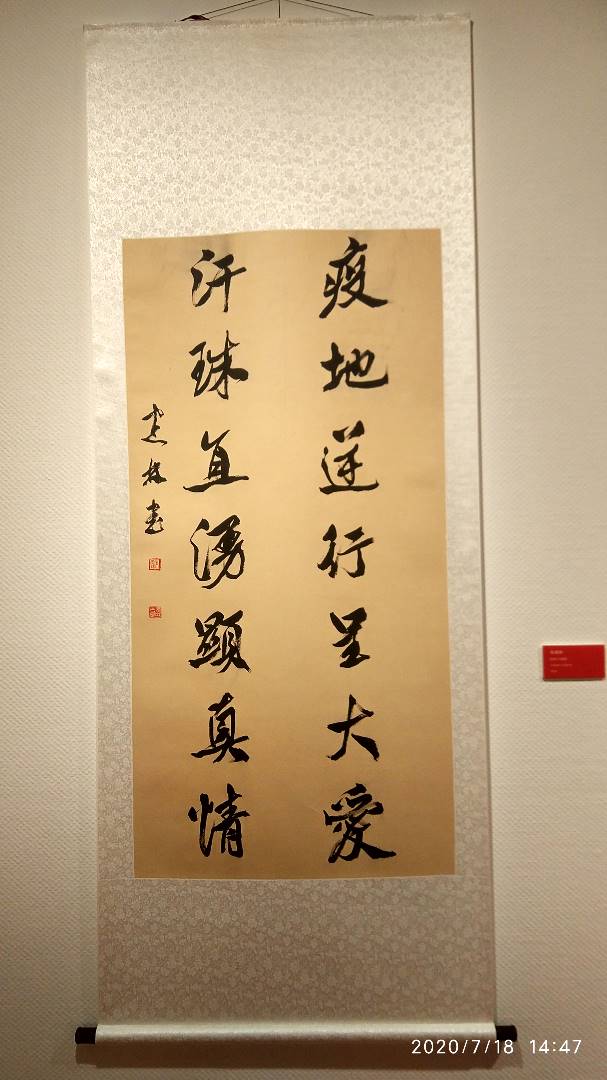 疫地逆行呈大愛
汗珠直湧顯真情
建林書
2020/7/18 14:47